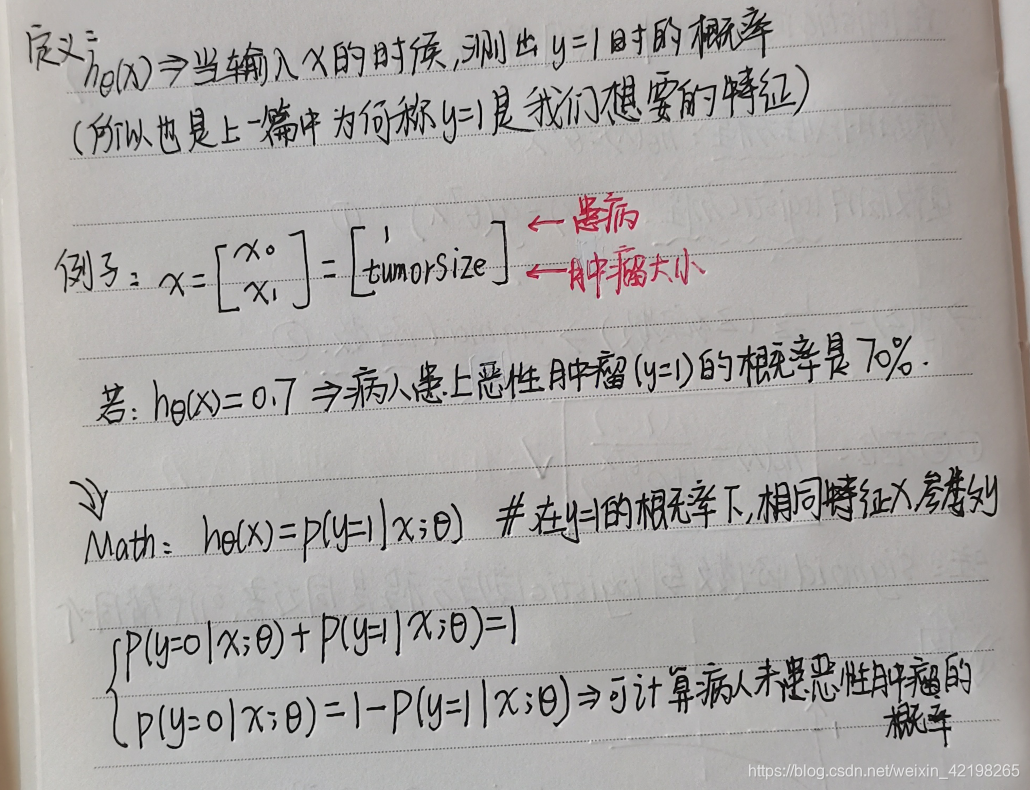 定义: hθ(x) ⇒ 当输入x的时候,测出y=1时的概率
(所以也是上一篇中为何称y=1是我们想要的特征)
例子: x = [x0 x1] = [1 tumorsize] ← 患病 ← 肿瘤大小
若: hθ(x) = 0.7 ⇒ 病人患上恶性肿瘤(y=1)的概率是70%.
Math: hθ(x) = p(y=1|x;θ) # 在y=1的概率下,相同特征x,参数y
{ p(y=0|x;θ) + p(y=1|x;θ) = 1
p(y=0|x;θ) = 1 - p(y=1|x;θ) ⇒ 可计算病人未患恶性肿瘤的
概率
https://blog.csdn.net/weixin_42198265